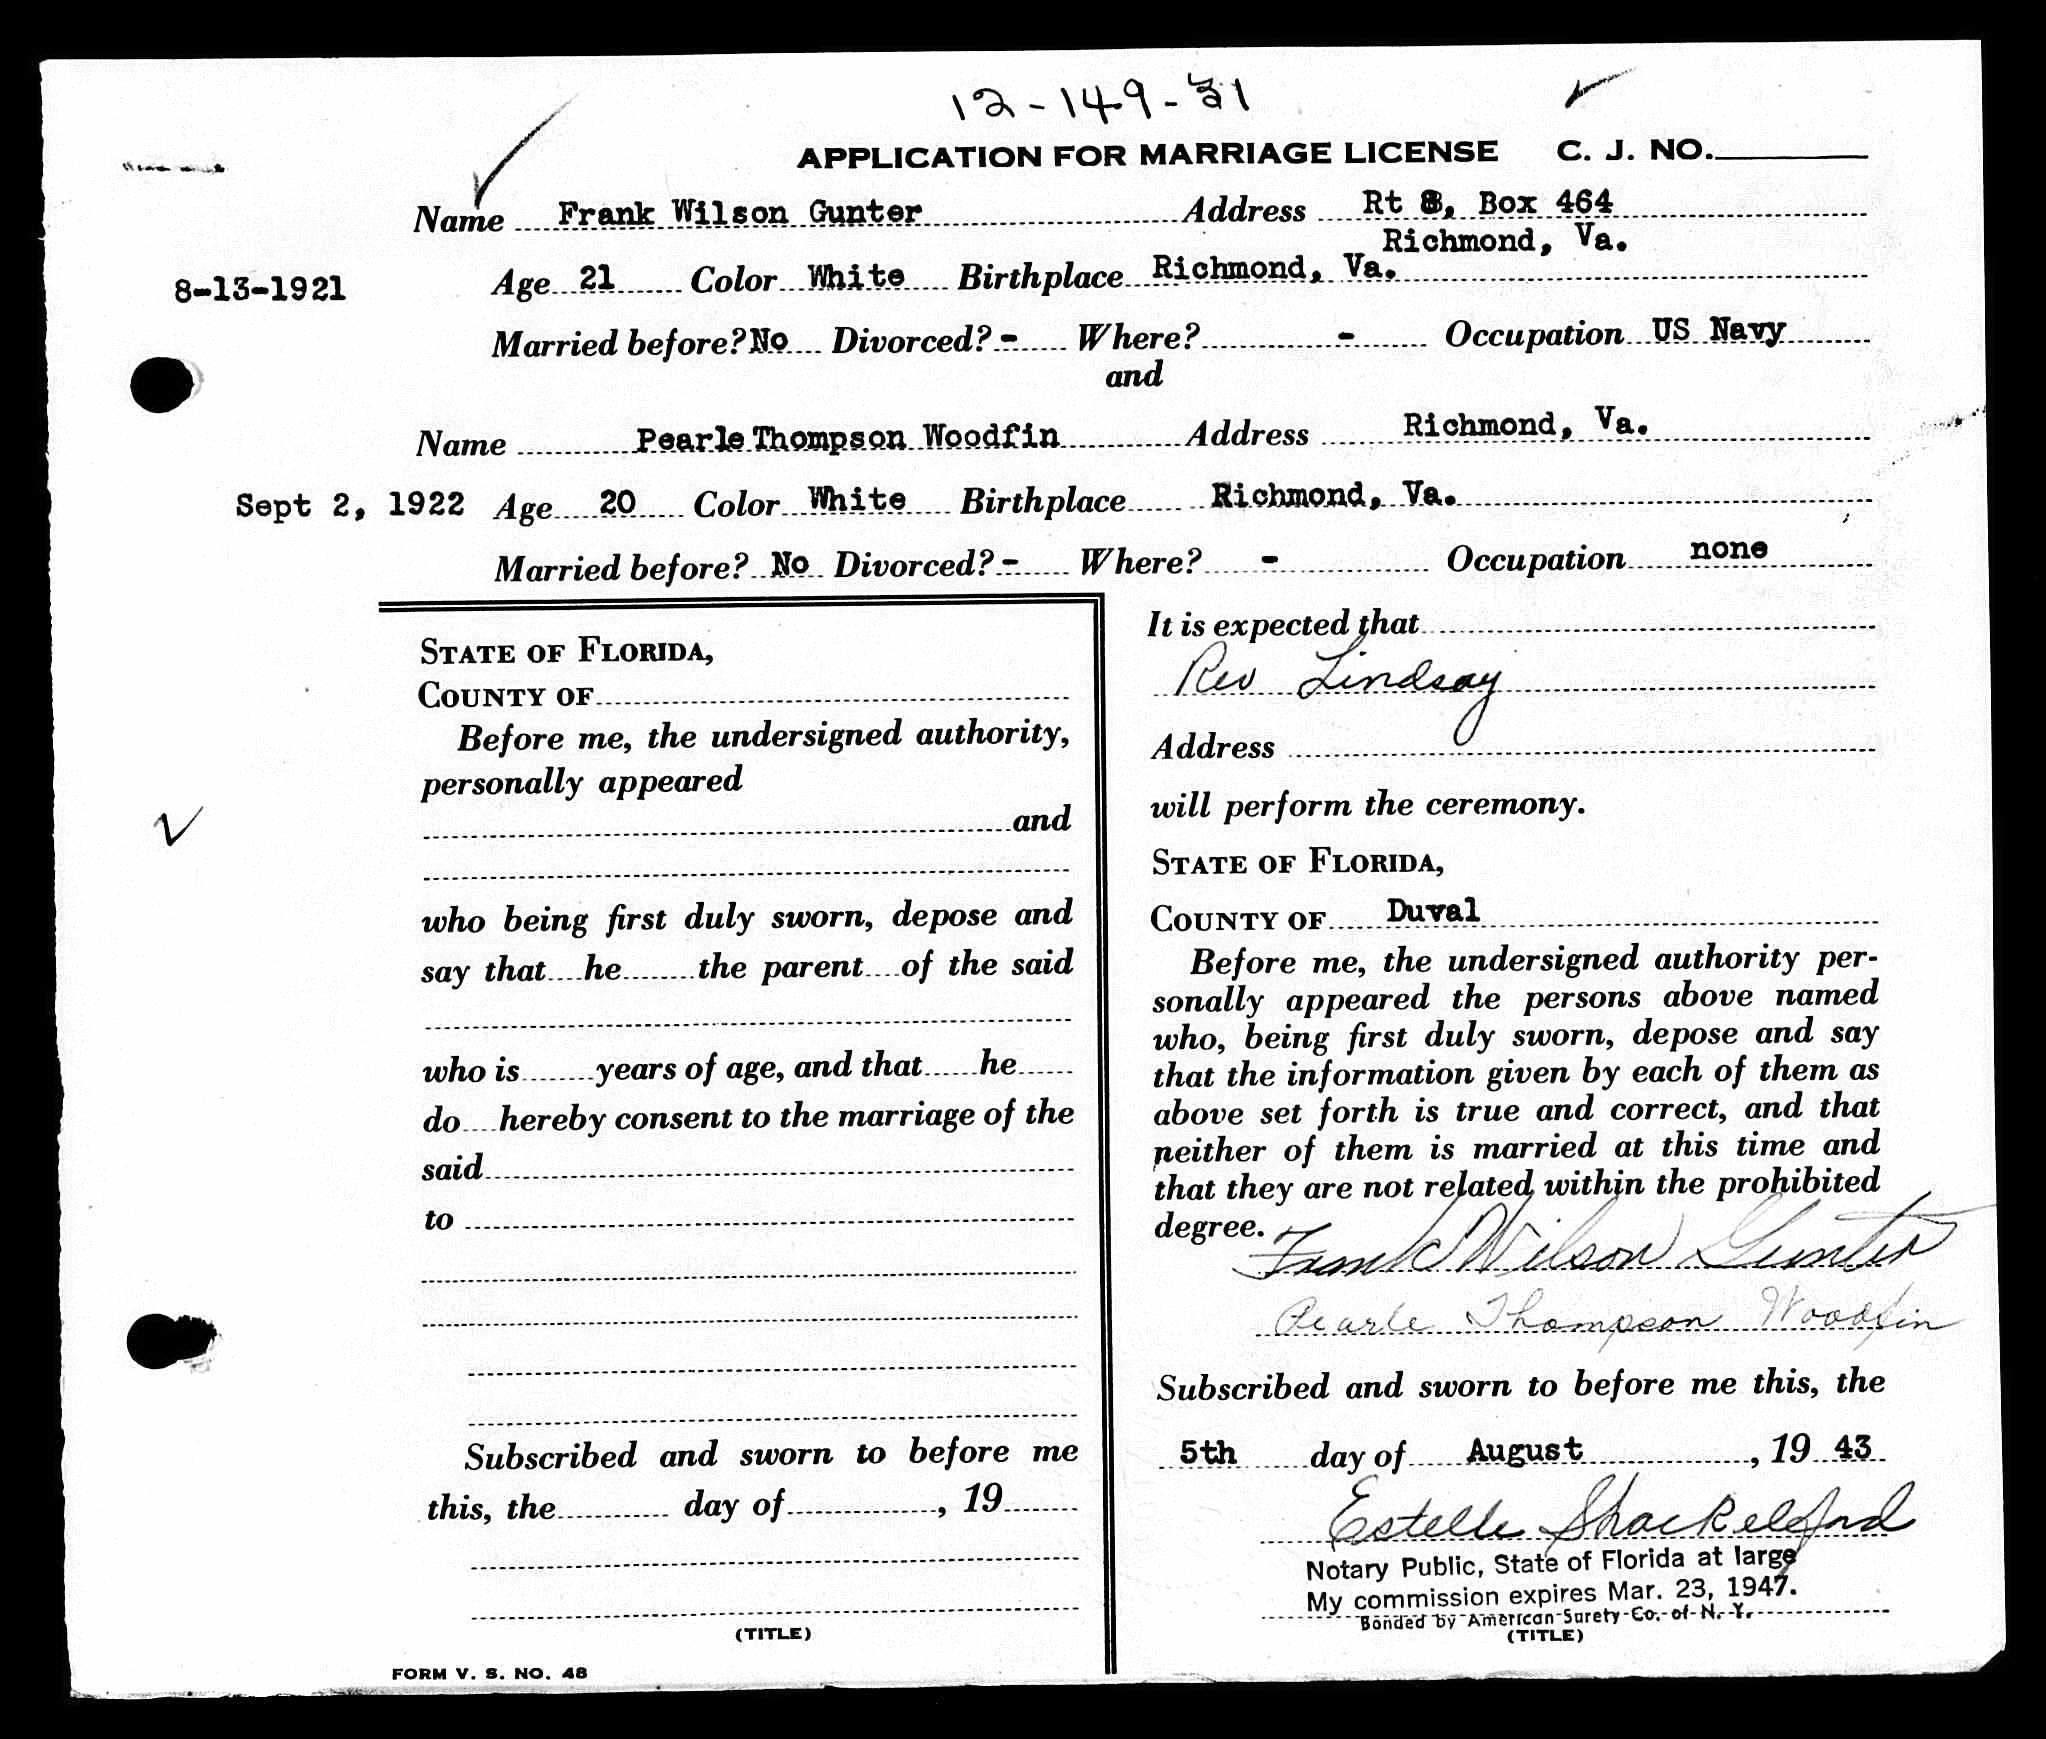 12-149-31
APPLICATION FOR MARRIAGE LICENSE C. J. NO.
Name Frank Wilson Gunter Address Rt 8, Box 464
Richmond, Va.
8-13-1921 Age 21 Color White Birthplace Richmond, Va.
Married before? No Divorced? - Where? - Occupation US Navy
and
Name Pearle Thompson Woodfin Address Richmond, Va.
Sept 2, 1922 Age 20 Color White Birthplace Richmond, Va.
Married before? No Divorced? - Where? - Occupation none
STATE OF FLORIDA,
COUNTY OF
Before me, the undersigned authority,
personally appeared
and
who being first duly sworn, depose and
say that he the parent of the said
who is years of age, and that he
do hereby consent to the marriage of the
said
to
Subscribed and sworn to before me
this, the day of , 19
(TITLE)
FORM V. S. NO. 48
It is expected that
Rev Lindsay
Address
will perform the ceremony.
STATE OF FLORIDA,
COUNTY OF Duval
Before me, the undersigned authority per-
sonally appeared the persons above named
who, being first duly sworn, depose and say
that the information given by each of them as
above set forth is true and correct, and that
neither of them is married at this time and
that they are not related within the prohibited
degree.
Frank Wilson Gunter
Pearle Thompson Woodfin
Subscribed and sworn to before me this, the
5th day of August , 19 43
Estelle Shackelford
Notary Public, State of Florida at large
My commission expires Mar. 23, 1947.
Bonded by American Surety Co. of N. Y.
(TITLE)